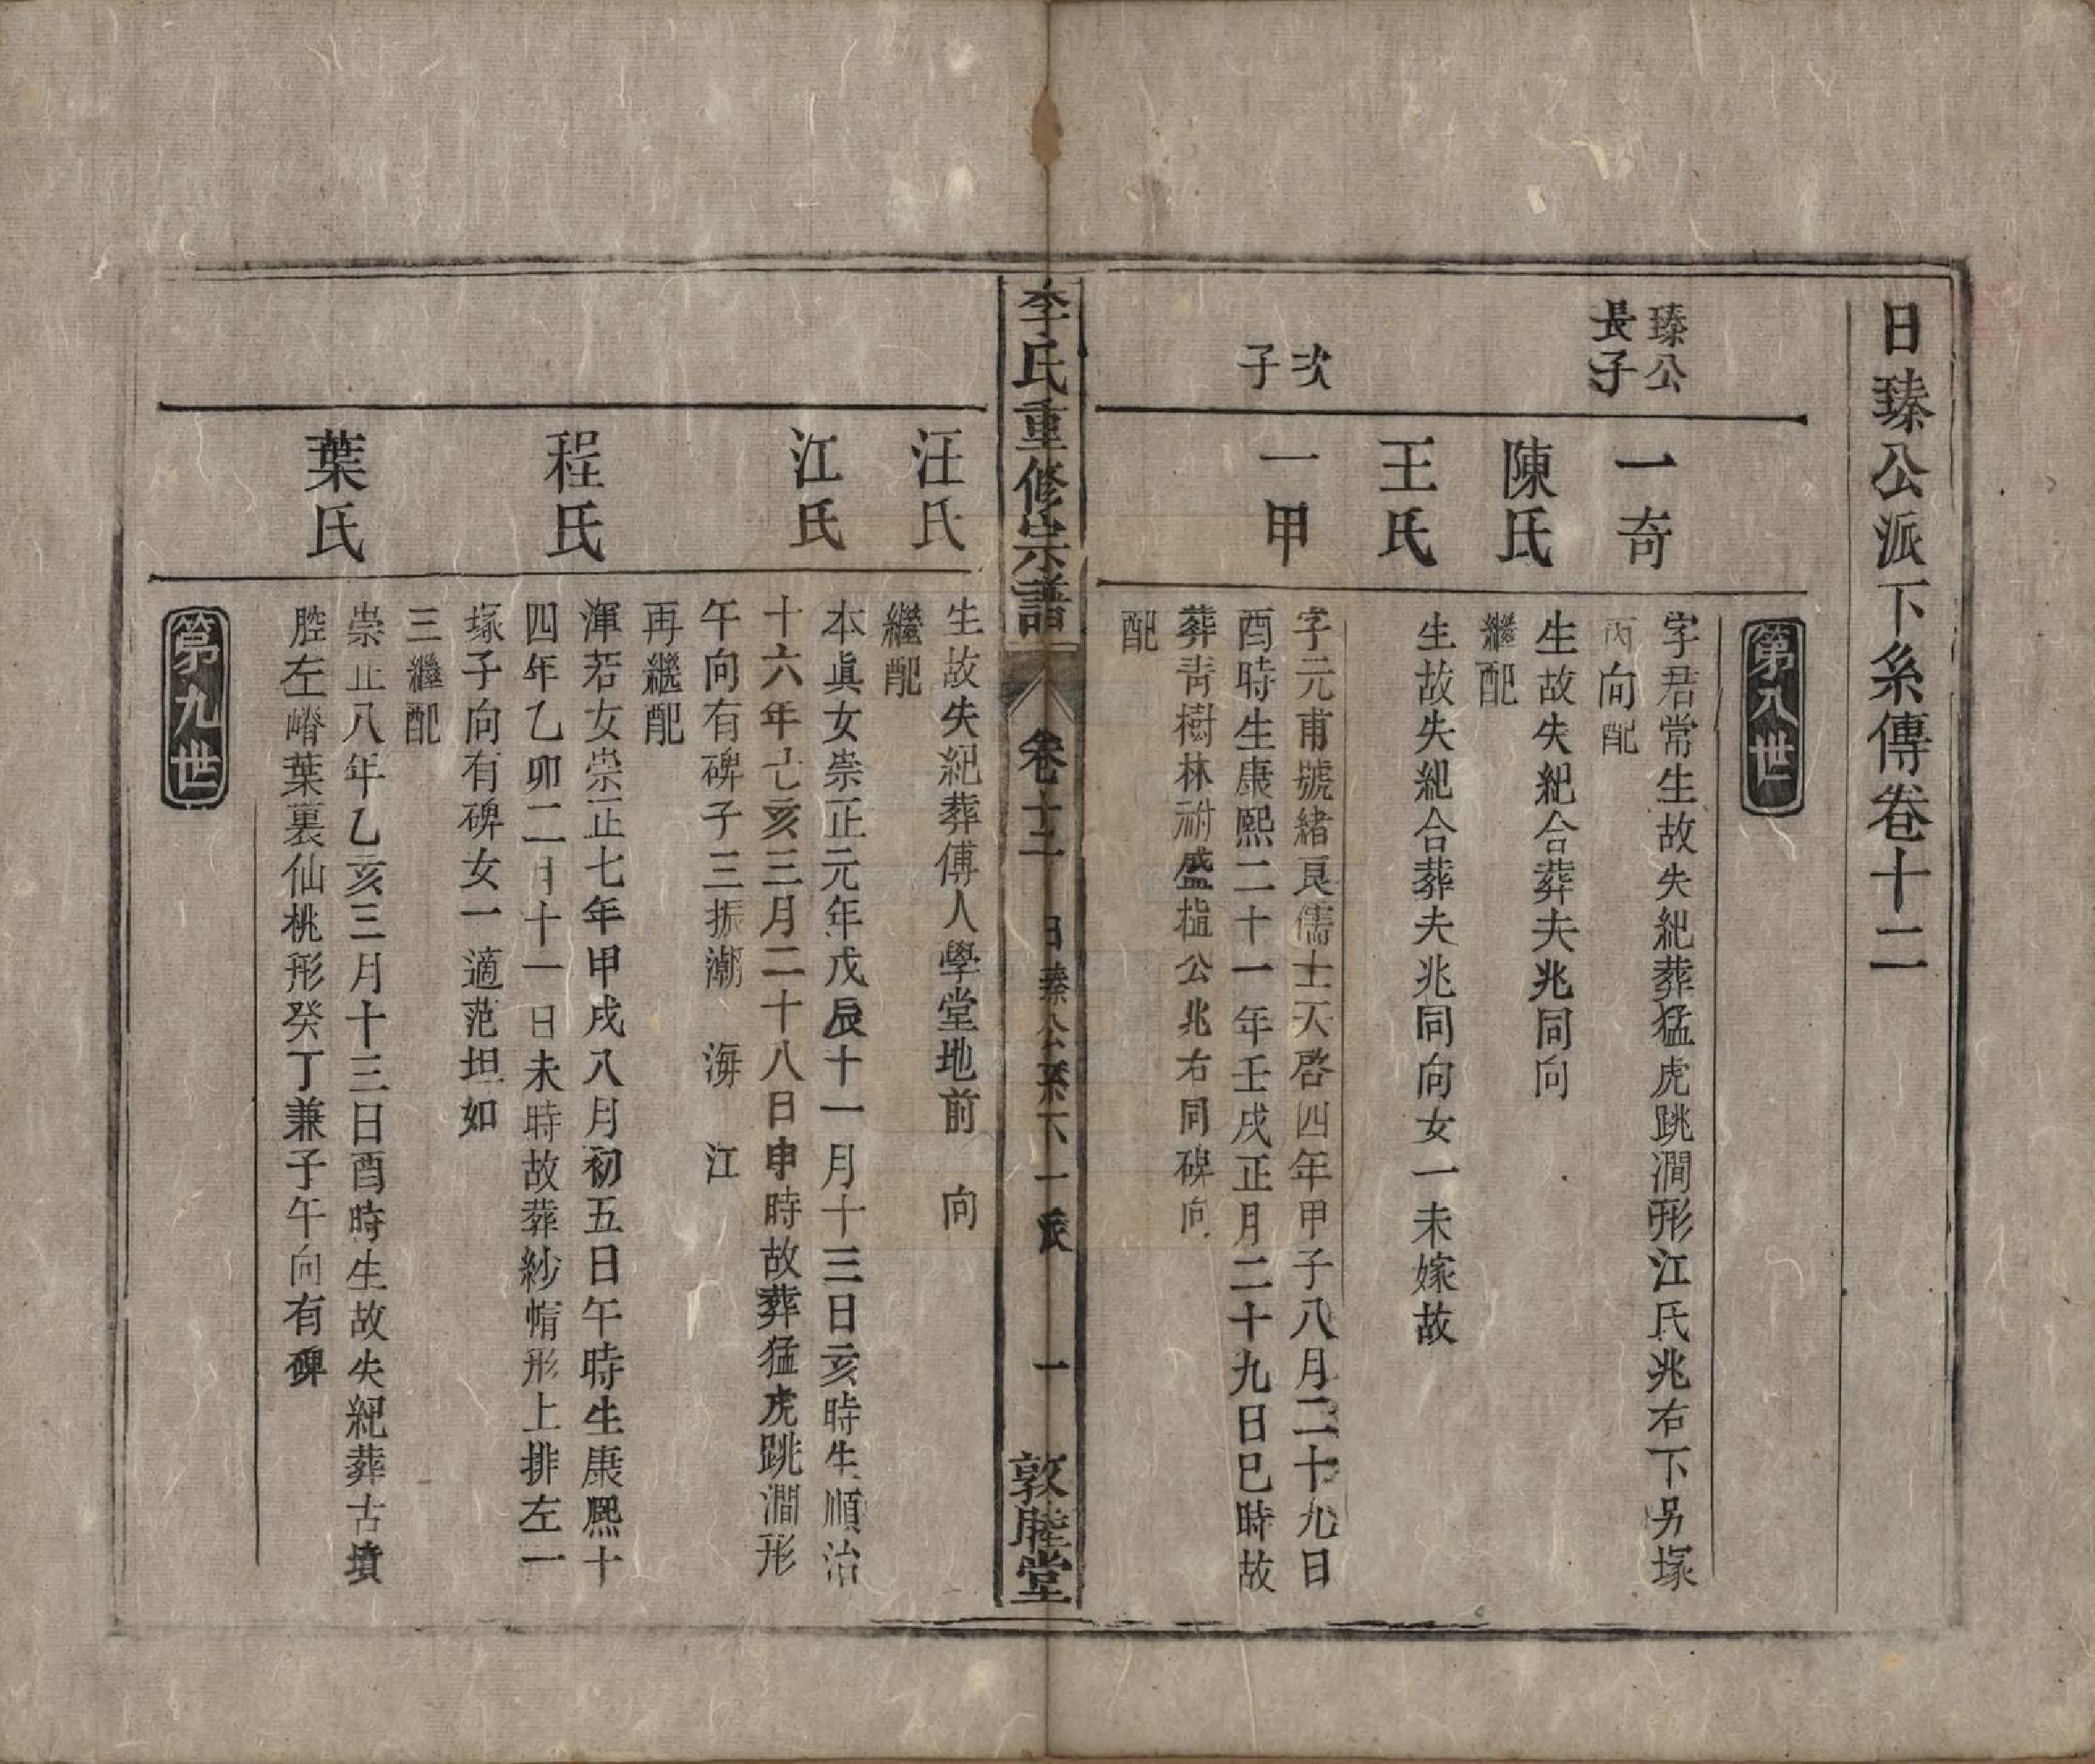 日瑧公派下糸傳卷十二
第八世
瑧公
長子
一奇
字君常生故失紀葬猛虎跳澗形江氏兆右下另塚
丙向配
陳氏
生故失紀合葬夫兆同向
繼配
王氏
生故失紀合葬夫兆同向女一未嫁故
次
子
一甲
字元甫號緒良儒士天啓四年甲子八月二十九日
酉時生康熙二十一年壬戌正月二十九日巳時故
葬靑樹林祔盛植公兆右同碑向
配
李氏重修宗譜
卷十二
日瑧公系下一派
一
敦睦堂
汪氏
生故失紀葬傅人學堂地前 向
繼配
江氏
本眞女崇正元年戊辰十一月十三日亥時生順治
十六年己亥三月二十八日申時故葬猛虎跳澗形
午向有碑子三振潮 海 江
再繼配
程氏
渾若女崇正七年甲戌八月初五日午時生康熙十
四年乙卯二月十一日未時故葬紗帽形上排左一
塚子向有碑女一適范坦如
三繼配
葉氏
崇正八年乙亥三月十三日酉時生故失紀葬古墳
腔左嵴葉裏仙桃形癸丁兼子午向有碑
第九世